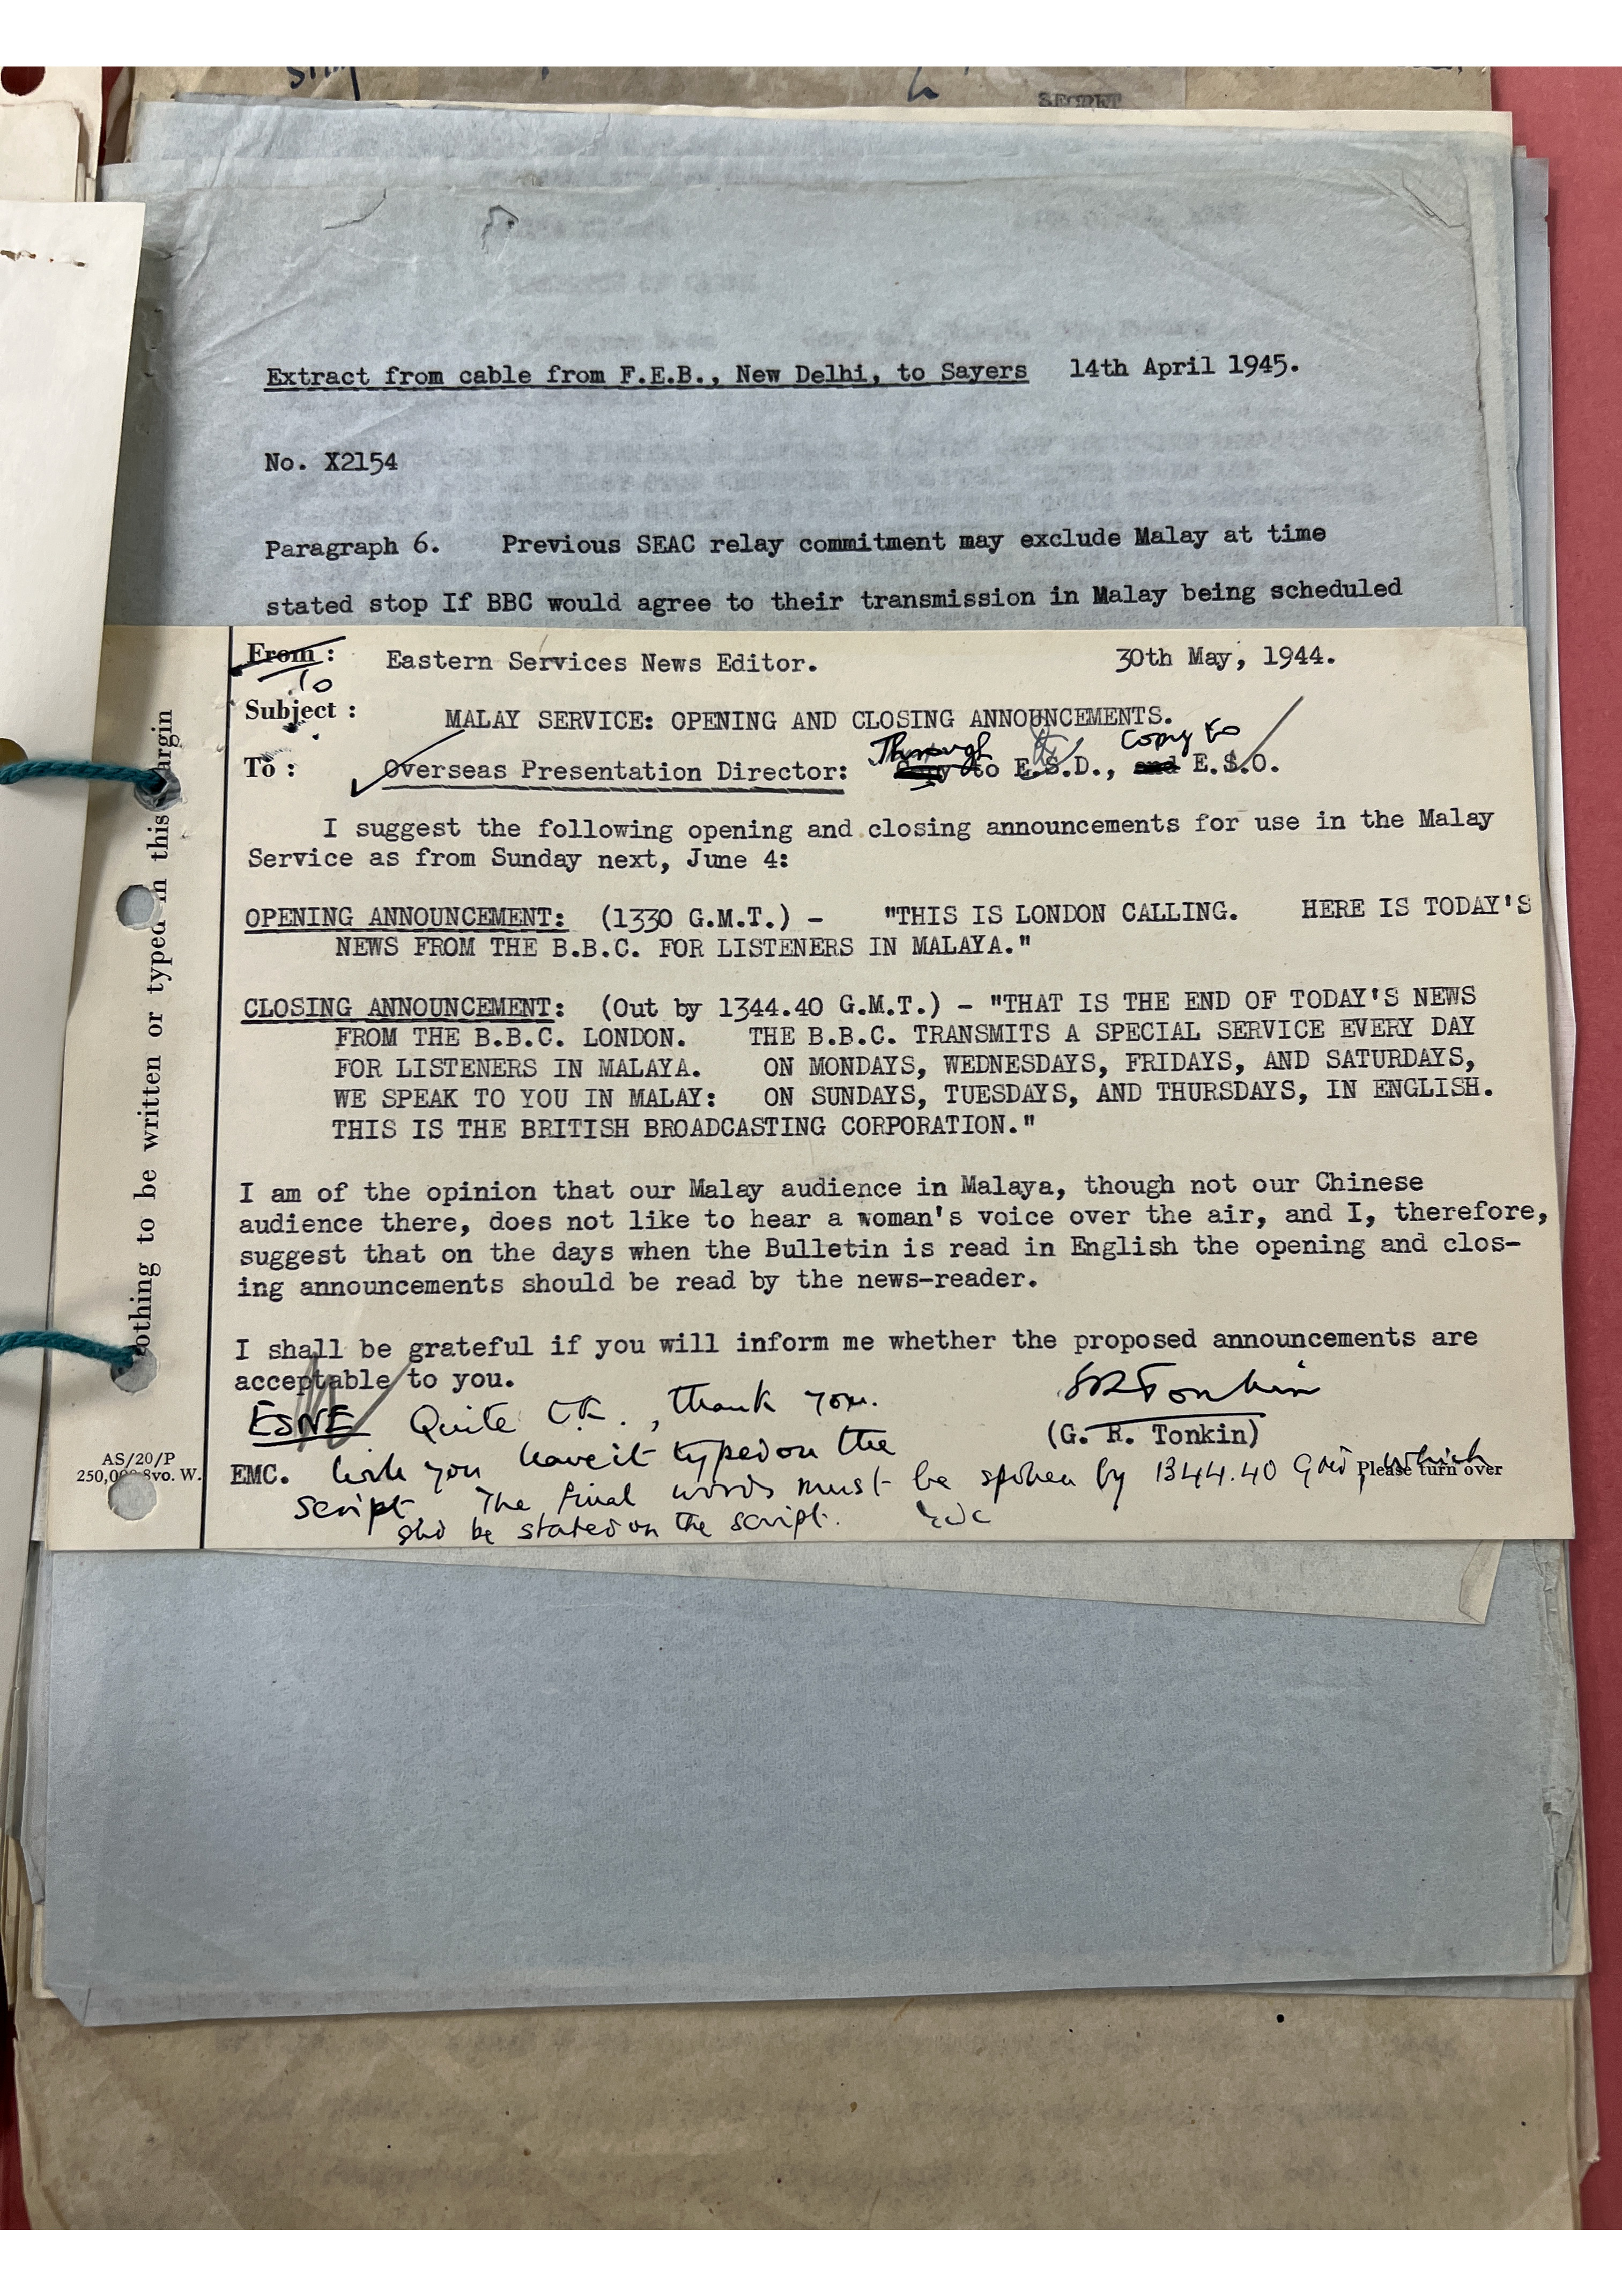 SECRET
Extract from cable from F.E.B., New Delhi, to Sayers 14th April 1945.
No. X2154
Paragraph 6. Previous SEAC relay commitment may exclude Malay at time
stated stop If BBC would agree to their transmission in Malay being scheduled
From :
To
Eastern Services News Editor. 30th May, 1944.
Subject : MALAY SERVICE: OPENING AND CLOSING ANNOUNCEMENTS.
Through copy to
To : Overseas Presentation Director: Copy to E.S.D., and E.S.O.
I suggest the following opening and closing announcements for use in the Malay
Service as from Sunday next, June 4:
OPENING ANNOUNCEMENT: (1330 G.M.T.) - "THIS IS LONDON CALLING. HERE IS TODAY'S
NEWS FROM THE B.B.C. FOR LISTENERS IN MALAYA."
CLOSING ANNOUNCEMENT: (Out by 1344.40 G.M.T.) - "THAT IS THE END OF TODAY'S NEWS
FROM THE B.B.C. LONDON. THE B.B.C. TRANSMITS A SPECIAL SERVICE EVERY DAY
FOR LISTENERS IN MALAYA. ON MONDAYS, WEDNESDAYS, FRIDAYS, AND SATURDAYS,
WE SPEAK TO YOU IN MALAY: ON SUNDAYS, TUESDAYS, AND THURSDAYS, IN ENGLISH.
THIS IS THE BRITISH BROADCASTING CORPORATION."
I am of the opinion that our Malay audience in Malaya, though not our Chinese
audience there, does not like to hear a woman's voice over the air, and I, therefore,
suggest that on the days when the Bulletin is read in English the opening and clos-
ing announcements should be read by the news-reader.
I shall be grateful if you will inform me whether the proposed announcements are
acceptable to you.
GRTonkin
(G. R. Tonkin)
ESNE Quite O.K., thank you.
EMC. Will you leave it typed on the
script The final words must be spoken by 1344.40 GMT, which
shd be stated on the script.
Please turn over
AS/20/P
250,000 8vo. W.
othing to be written or typed in this argin